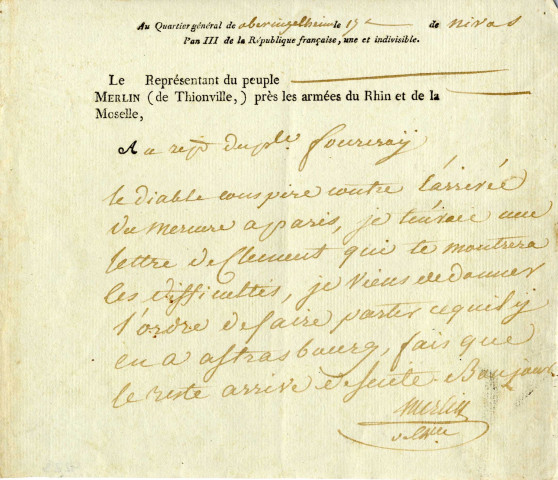 Au Quartier général de oberingelheim le 17e de nivos
l'an III de la République française, une et indivisible.
Le Représentant du peuple
MERLIN (de Thionville,) près les armées du Rhin et de la
Moselle,
Au repst du ple fourcroy
le diable conspire contre l'arrivée
du mercure a paris, je t'envoie une
lettre de Clement qui te montrera
les difficultés, je viens de donner
l'ordre de faire partir ce qu'il y
en a a strasbourg, fais que
le reste arrive de suite Bonjour
Merlin